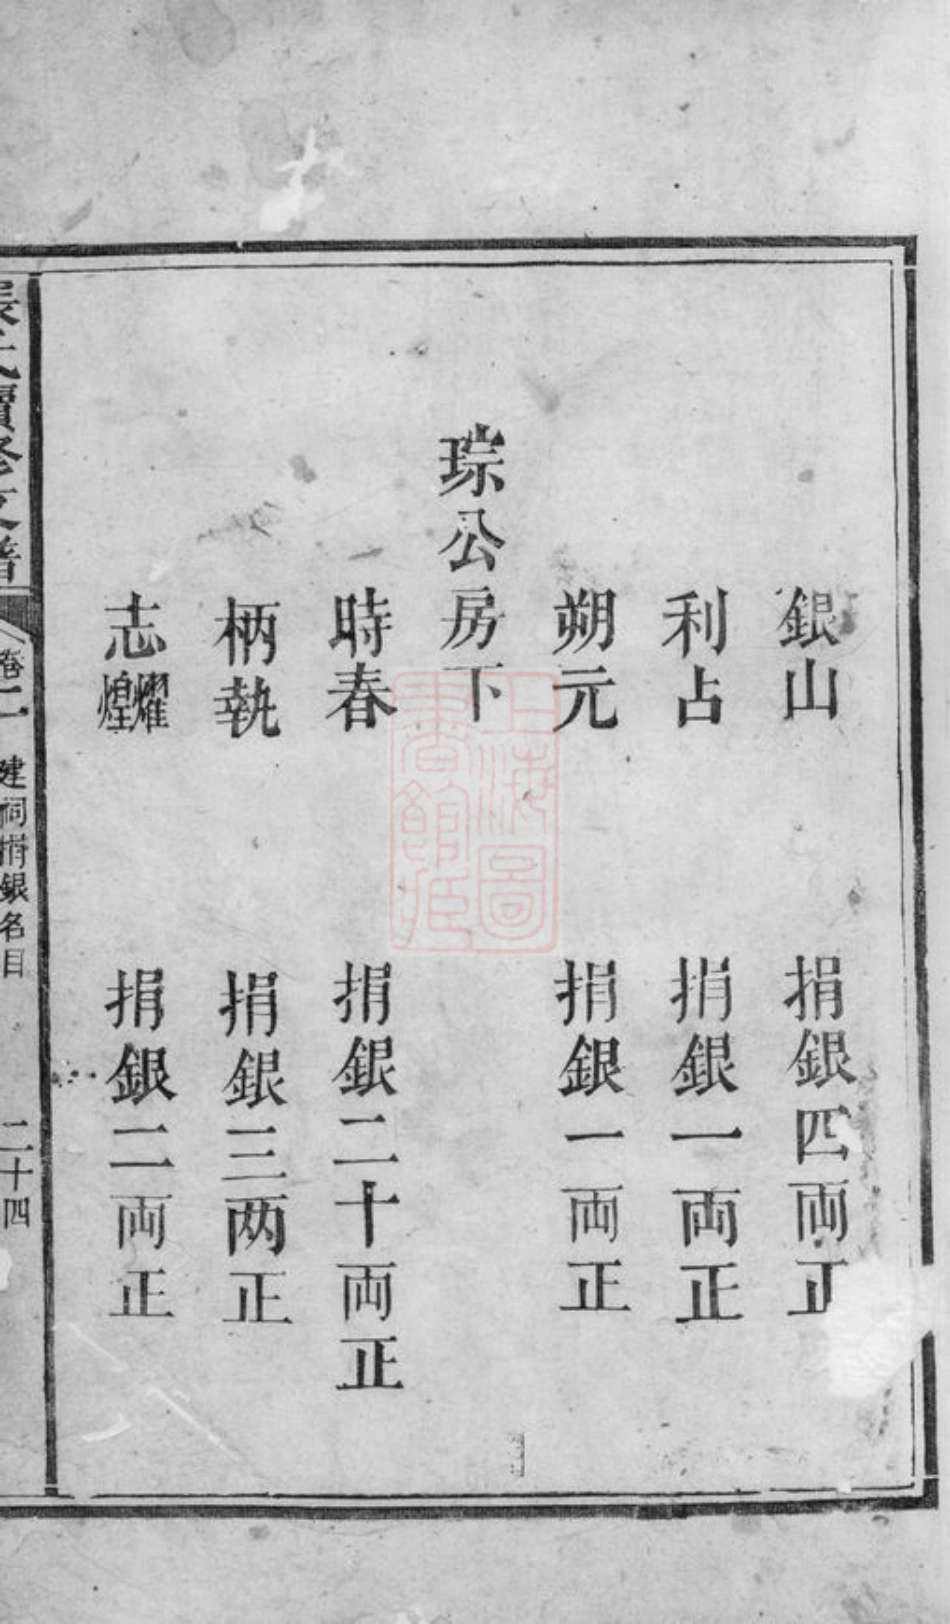 銀山 捐銀四両正
利占 捐銀一両正
朔元 捐銀一両正
琮公房下
時春 捐銀二十両正
柄執 捐銀三两正
志耀煌 捐銀二両正
張氏續修支譜 卷二 建祠捐銀名目 二十四
上海圖書館藏